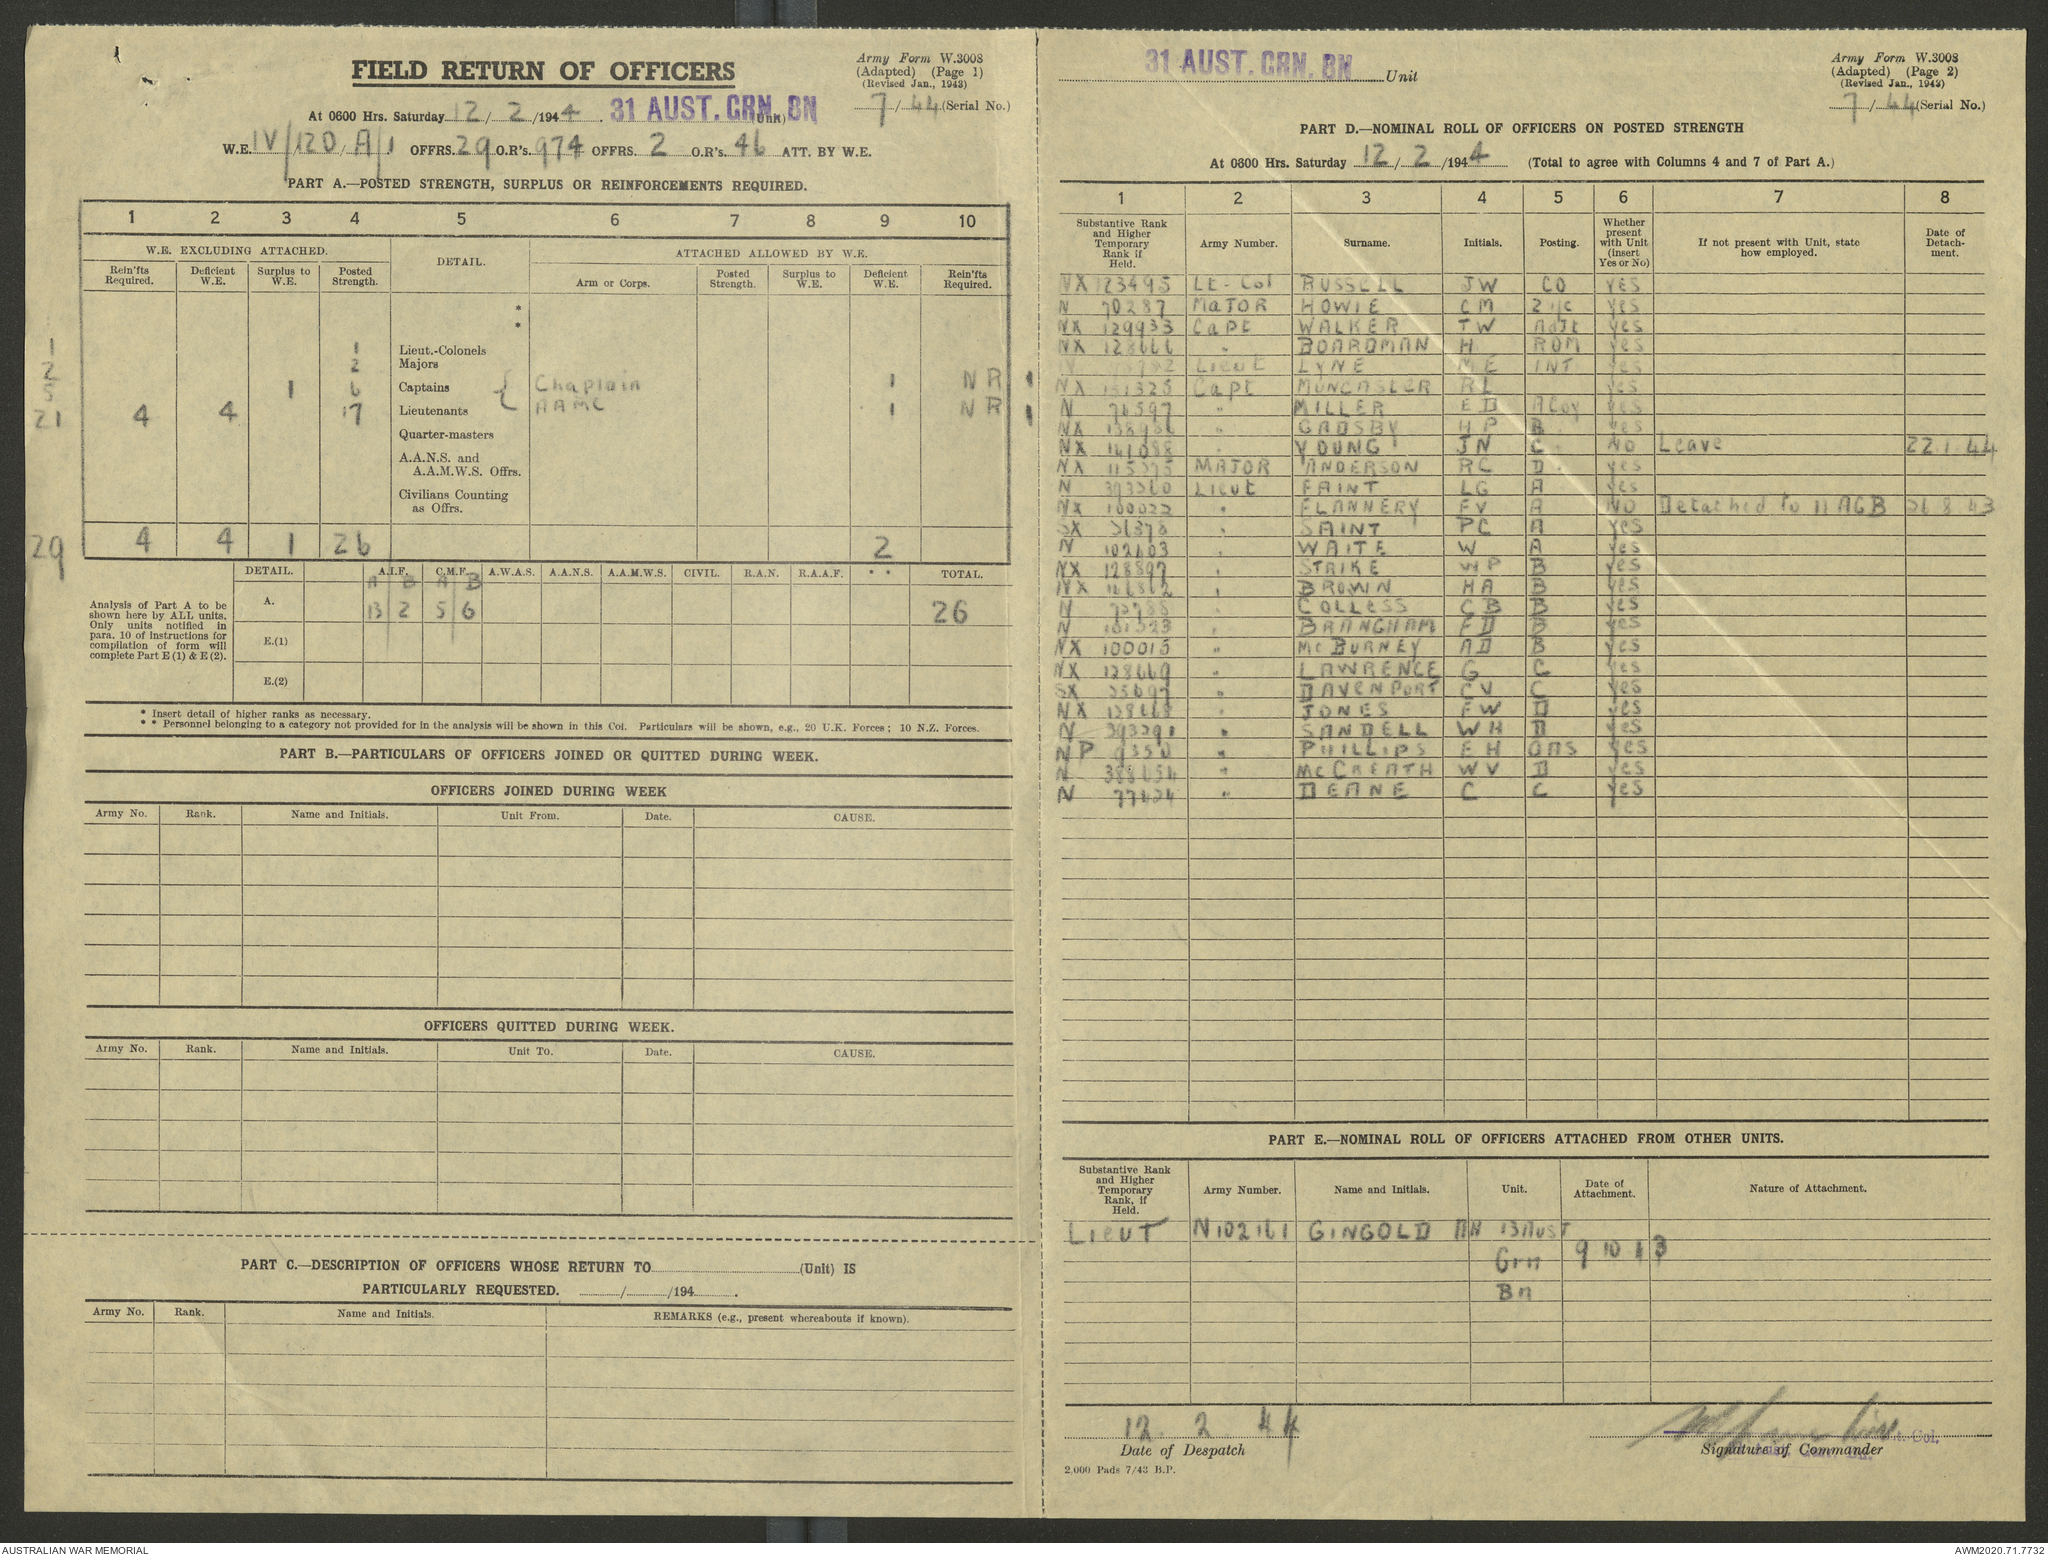 FIELD RETURN OF OFFICERS
Army Form W.3008
(Adapted) (Page 1)
(Revised Jan., 1943)
7 / 44 (Serial No.)
At 0600 Hrs. Saturday 12 / 2 /1944. 31 AUST. GRN. BN (Unit)
W.E. IV/12D/A/1 OFFRS. 29 O.R's. 974 OFFRS. 2 O.R's. 46 ATT. BY W.E.
PART A.—POSTED STRENGTH, SURPLUS OR REINFORCEMENTS REQUIRED.
1 2 3 4 5 6 7 8 9 10
W.E. EXCLUDING ATTACHED. DETAIL. ATTACHED ALLOWED BY W.E.
Rein'fts Required. Deficient W.E. Surplus to W.E. Posted Strength. Arm or Corps. Posted Strength. Surplus to W.E. Deficient W.E. Rein'fts Required.
*
*
1 1 Lieut.-Colonels
2 2 Majors
5 1 6 Captains { Chaplain 1 NR 1
21 4 4 17 Lieutenants AAMC 1 NR 1
Quarter-masters
A.A.N.S. and
A.A.M.W.S. Offrs.
Civilians Counting
as Offrs.
29 4 4 1 26 2
DETAIL. A.I.F. C.M.F. A.W.A.S. A.A.N.S. A.A.M.W.S. CIVIL. R.A.N. R.A.A.F. * * TOTAL.
A B A B
A. 13 2 5 6 26
E.(1)
E.(2)
Analysis of Part A to be
shown here by ALL units.
Only units notified in
para. 10 of instructions for
compilation of form will
complete Part E (1) & E (2).
* Insert detail of higher ranks as necessary.
* * Personnel belonging to a category not provided for in the analysis will be shown in this Col. Particulars will be shown, e.g., 20 U.K. Forces; 10 N.Z. Forces.
PART B.—PARTICULARS OF OFFICERS JOINED OR QUITTED DURING WEEK.
OFFICERS JOINED DURING WEEK
Army No. Rank. Name and Initials. Unit From. Date. CAUSE.
OFFICERS QUITTED DURING WEEK.
Army No. Rank. Name and Initials. Unit To. Date. CAUSE.
PART C.—DESCRIPTION OF OFFICERS WHOSE RETURN TO (Unit) IS
PARTICULARLY REQUESTED. / /194 .
Army No. Rank. Name and Initials. REMARKS (e.g., present whereabouts if known).
31 AUST. GRN. BN Unit
Army Form W.3008
(Adapted) (Page 2)
(Revised Jan., 1943)
7 / 44 (Serial No.)
PART D.—NOMINAL ROLL OF OFFICERS ON POSTED STRENGTH
At 0600 Hrs. Saturday 12 / 2 /1944 (Total to agree with Columns 4 and 7 of Part A.)
1 2 3 4 5 6 7 8
Substantive Rank and Higher Temporary Rank if Held. Army Number. Surname. Initials. Posting. Whether present with Unit (insert Yes or No) If not present with Unit, state how employed. Date of Detach-ment.
NX 123495 Lt-Col RUSSELL JW CO YES
N 70287 MAJOR HOWIE CM 2 i/c yes
NX 129933 Capt WALKER TW Adjt yes
NX 128666 " BOARDMAN H ROM yes
Lieut LYNE ME INT yes
NX 151325 Capt MUNCASTER RL yes
N 76597 " MILLER ED A Coy yes
NX 138986 " GADSBY HP B yes
NX 141088 " YOUNG JN C NO Leave 22.1.44
NX 115375 MAJOR ANDERSON RC D yes
N 393260 Lieut FAINT LG A yes
NX 100022 " FLANNERY FV A NO Detached to 11 AGB 26 8 43
SX 31378 " SAINT PC A yes
N 102603 " WAITE W A yes
NX 128897 " STRIKE WP B yes
NX 126862 " BROWN HA B yes
N 73788 " COLLESS CB B yes
N 101323 " BRANGHAM FD B yes
NX 100015 " McBURNEY AD B yes
NX 128669 " LAWRENCE G C yes
SX 25697 " DAVENPORT CV C yes
NX 128668 " JONES FW D yes
N 393291 " SANDELL WH D yes
NP 9350 " PHILLIPS EH OMS yes
N 388654 " McCREATH WV D yes
N 77424 " DEANE C C yes
PART E.—NOMINAL ROLL OF OFFICERS ATTACHED FROM OTHER UNITS.
Substantive Rank and Higher Temporary Rank, if Held. Army Number. Name and Initials. Unit. Date of Attachment. Nature of Attachment.
LIEUT N102161 GINGOLD AN 13 AUST
Grn 9 10 43
Bn
12. 2. 44
Date of Despatch
Signature of Commander
Lt. Col.
2,000 Pads 7/43 B.P.
AUSTRALIAN WAR MEMORIAL
AWM2020.71.7732